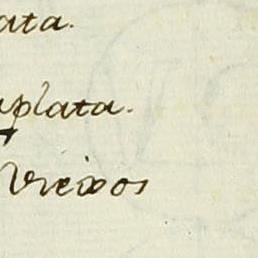 ata.
plata.
Vrexos